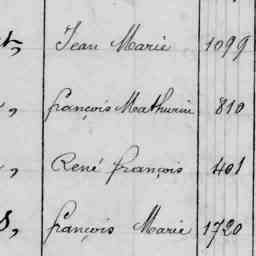 t, Jean Marie 1099
, François Mathurin 810
, René François 401
s, François Marie 1720